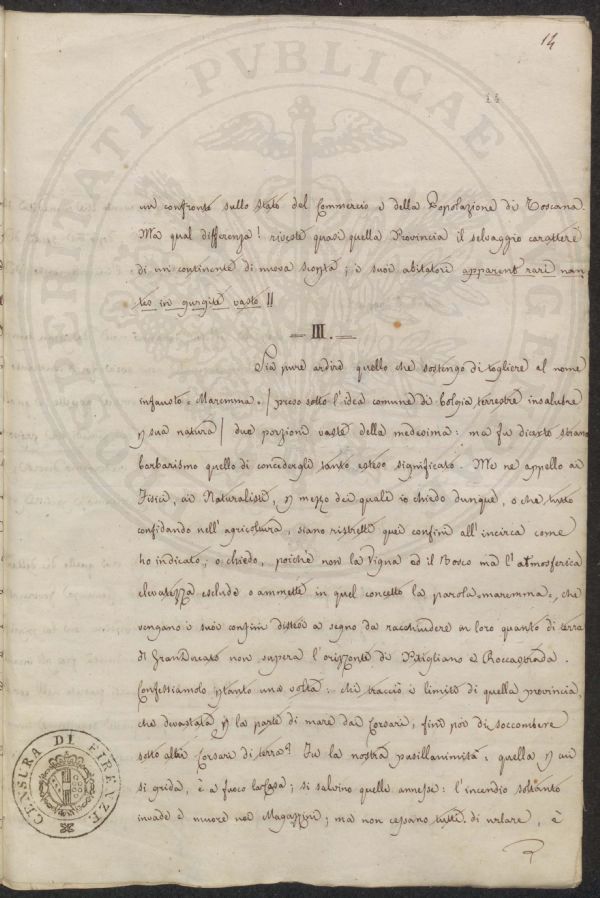 14
14
un confronto sullo stato del Commercio e della Popolazione di Toscana.
Ma qual differenza! riveste quasi quella Provincia il selvaggio carattere
di un continente di nuova scoperta; i suoi abitatori apparent rari nan-
tes in gurgite vasto!!
= III. =
Sia pure ardire quello che sostengo di togliere al nome
infausto = Maremma = / preso sotto l'idea comune di bolgia terrestre insalubre
p sua natura / due porzioni vaste della medesima: ma fu dicerto strano
barbarismo quello di concedergli tanto esteso significato. Me ne appello ai
Fisici, ai Naturalisti, p mezzo dei quali io chiedo dunque, o che tutto
confidando nell'agricoltura, siano ristretti quei confini all'incirca come
ho indicato, o chiedo, poichè non la Vigna ed il Bosco ma l'atmosferica
elevatezza esclude o ammette in quel concetto la parola = maremma =, che
vengano i suoi confini distesi a segno da racchiudere in loro quanto di terra
di Granducato non supera l'orizzonte di Pitigliano e Roccastrada.
Confessiamolo ptanto una volta: chi tracciò i limiti di quella provincia,
che devastata p la parte di mare dai Corsari, finì poi di soccombere
sotto altri Corsari di terra? Fu la nostra pusillanimità: quella p cui
si grida, è a fuoco la Casa; si salvino quelle annesse: l'incendio soltanto
invade e muore nei Magazzini; ma non cessano tutti di urlare, è
CENSURA DI FIRENZE
PROSPERITATI PVBLICAE